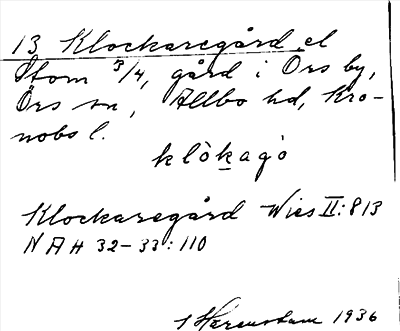 13 Klockaregård el
Stom 3/4, gård i Örs by,
Örs sn, Allbo hd, Kro-
nobs l.
klòkagò
Klockaregård Wies II:813
NAH 32-33:110
1936